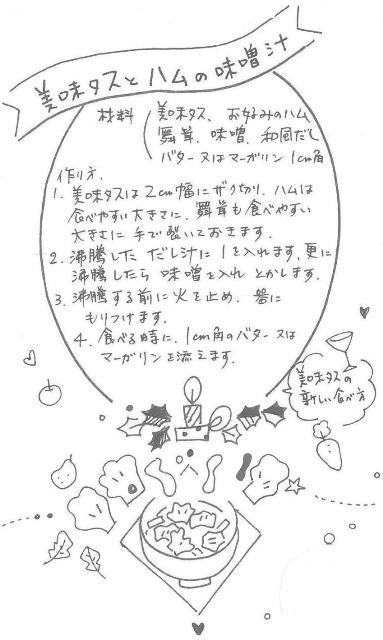 美味タスとハムの味噌汁
材料 美味タス、お好みのハム
舞茸、味噌、和風だし
バター又はマーガリン1cm角
作り方.
1. 美味タスは2cm幅にザク切り、ハムは
食べやすい大きさに、舞茸も食べやすい
大きさに手で裂いておきます。
2. 沸騰しただし汁に1を入れます。更に
沸騰したら味噌を入れとかします。
3. 沸騰する前に火を止め、器に
もりつけます。
4. 食べる時に、1cm角のバター又は
マーガリンを添えます。
美味タスの
新しい食べ方